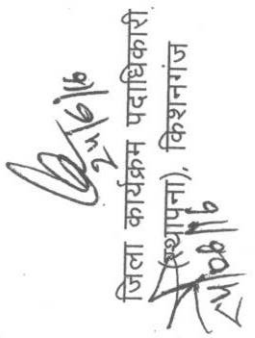 24/6/16
जिला कार्यक्रम पदाधिकारी
(स्थापना), किशनगंज
24/06/16